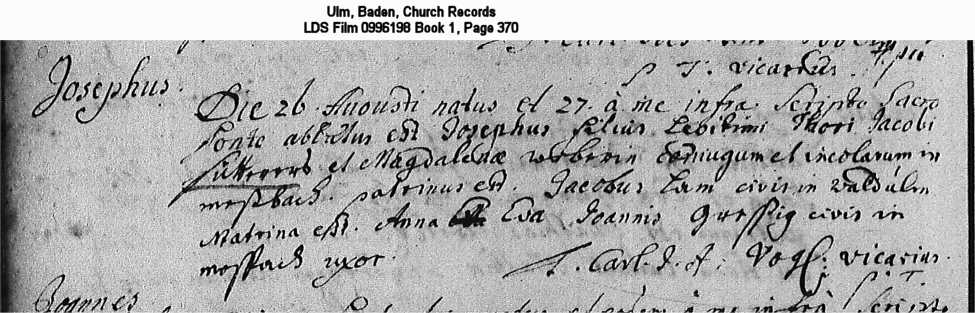 Ulm, Baden, Church Records
LDS Film 0996198 Book 1, Page 370
vicarius
Josephus.
Die 26 Augusti natus et 27. à me infra scripto sacro
fonte ablutus est Josephus filius legitimi Thori Jacobi
Sutterers et Magdalenae weberin coniugum et incolarum in
mosbach. patrinus est. Jacobus civis in valdulm
Matrina est. Anna Eva Joannis civis in
mosbach uxor.
F. Carl. Vogl. vicarius.
Joannes
à me infrà scripto